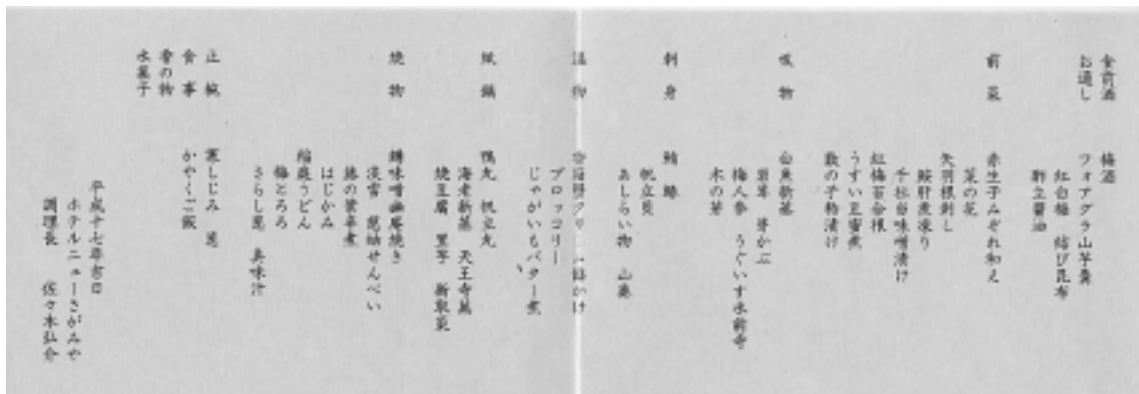 食前酒 梅酒
お通し フォアグラ山芋羹
紅白梅 結び昆布
酢立醤油
前菜 赤生子みぞれ和え
菜の花
矢羽根刺し
鮟肝煮凍り
千社台味噌漬け
紅梅百合根
うすい豆蜜煮
数の子粕漬け
吸物 白魚新薯
岩茸 芽かぶ
梅人参 うぐいす水前寺
木の芽
刺身 鮪 鰆
帆立貝
あしらい物 山葵
温物
ブロッコリー
じゃがいもバター煮
紙鍋 鴨丸 帆立丸
海老新薯 天王寺蕪
焼豆腐 里芋 新取菜
焼物 鰆味噌幽庵焼き
淡雪 慈姑せんべい
蕗の葉辛煮
はじかみ
稲庭うどん
梅とろろ
さらし葱 美味汁
止椀 寒しじみ 葱
食事 かやくご飯
香の物
水菓子
平成十七年吉日
ホテルニューさがみや
調理長 佐々木弘介